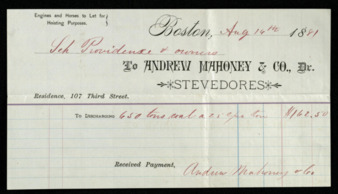 Engines and Horses to Let for
Hoisting Purposes.
Boston, Aug 14th 1881
Sch Providence & owners
To ANDREW MAHONEY & CO., Dr.
STEVEDORES
Residence, 107 Third Street.
To Discharging 650 tons coal a 25 ¢ per ton $162.50
Received Payment,
Andrew Mahoney & Co